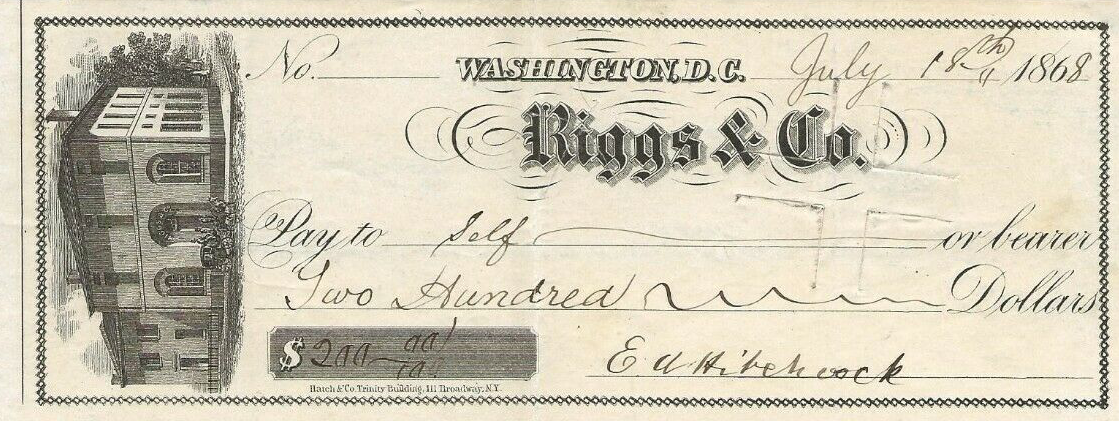 No. WASHINGTON, D.C. July 18th 1868
Riggs & Co.
Pay to Self or bearer
Two Hundred Dollars
$ 200
Ed Hitchcock
Hatch & Co. Trinity Building, 111 Broadway, N.Y.